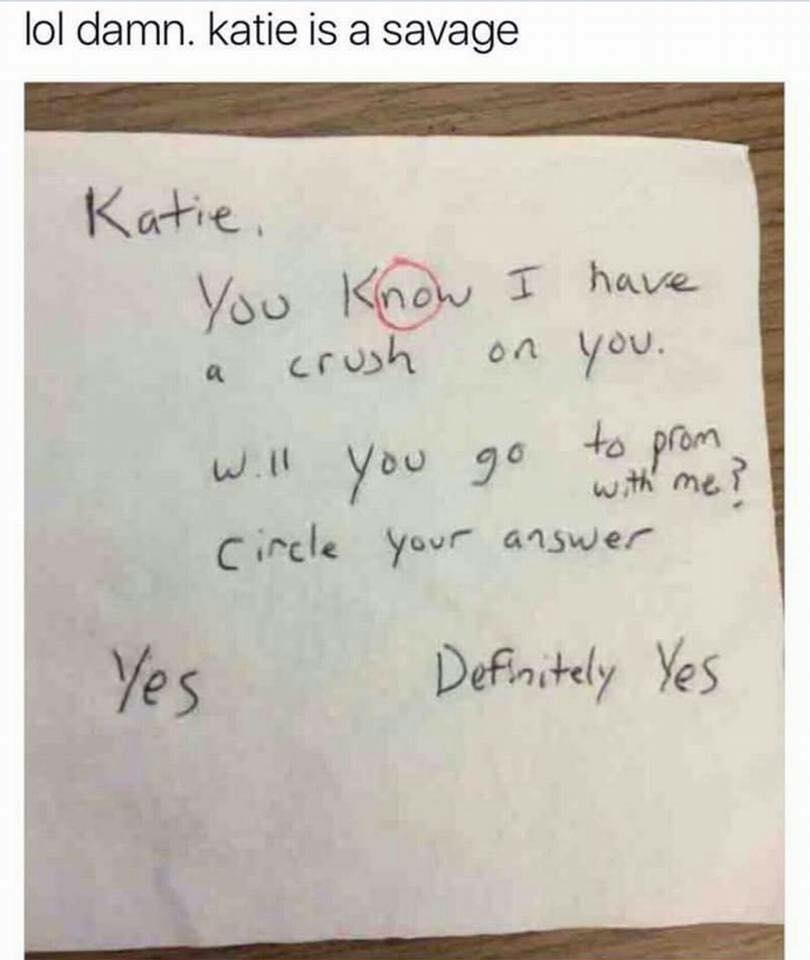 lol damn. katie is a savage
Katie,
You Know I have
a crush on you.
Will you go to prom
with me?
Circle your answer
Yes Definitely Yes